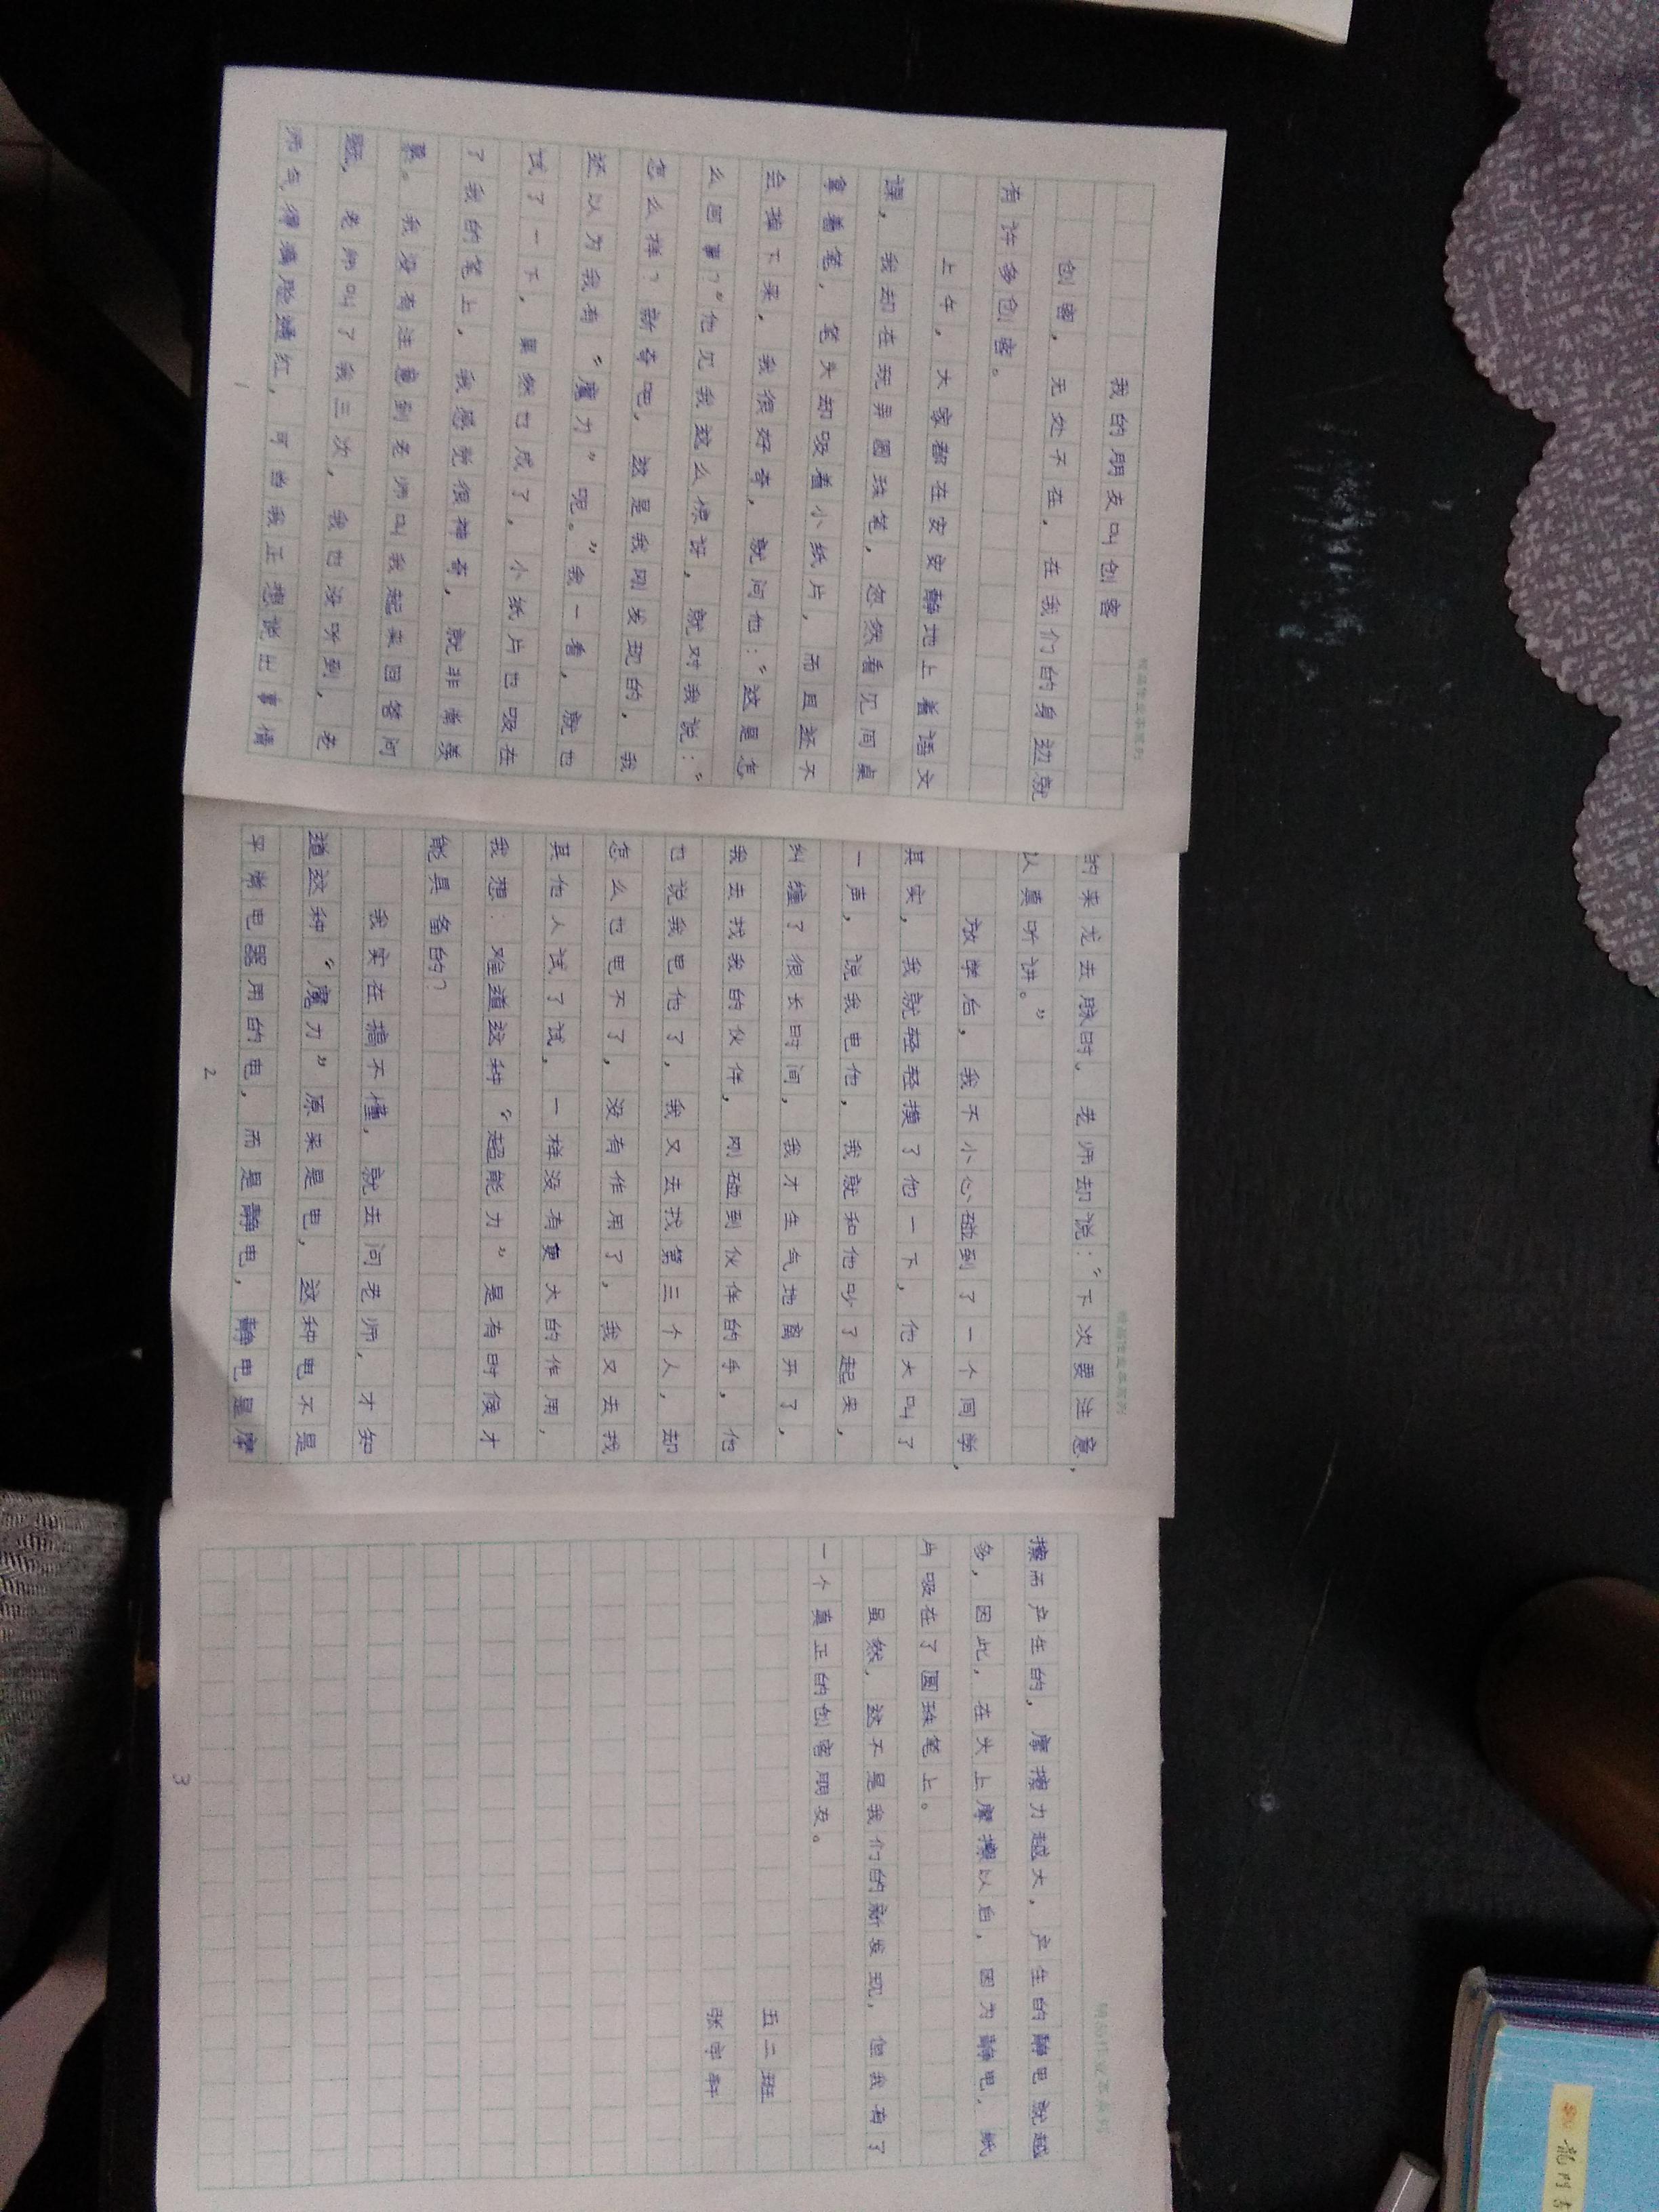 我的朋友叫创客
创客，无处不在，在我们的身边就
有许多创客。
上午，大家都在安安静地上着语文
课，我却在玩弄圆珠笔，忽然看见同桌
拿着笔，笔头却吸着小纸片，而且还不
会掉下来，我很好奇，就问他：“这是怎
么回事？”他见我这么惊讶，就对我说：“
怎么样？新奇吧，这是我刚发现的，我
还以为我有“魔力”呢。”我一看，就也
试了一下，果然也成了，小纸片也吸在
了我的笔上，我感觉很神奇，就非常羡
慕。我没有注意到老师叫我起来回答问
题，老师叫了我三次，我也没听到，老
师气得满脸通红，可当我正想说出事情
1
的来龙去脉时，老师却说：“下次要注意，
认真听讲。”
放学后，我不小心碰到了一个同学，
其实，我就轻轻摸了他一下，他大叫了
一声，说我电他，我就和他吵了起来，
纠缠了很长时间，我才生气地离开了，
我去找我的伙伴，刚碰到伙伴的手，他
也说我电他了，我又去找第三个人，却
怎么也电不了，没有作用了，我又去找
其他人试了试，一样没有更大的作用，
我想：难道这种“超能力”是有时候才
能具备的？
我实在搞不懂，就去问老师，才知
道这种“魔力”原来是电，这种电不是
平常电器用的电，而是静电，静电是摩
2
擦而产生的，摩擦力越大，产生的静电就越
多，因此，在头上摩擦以后，因为静电，纸
片吸在了圆珠笔上。
虽然，这不是我们的新发现，但我有了
一个真正的创客朋友。
五二班
张宇轩
3